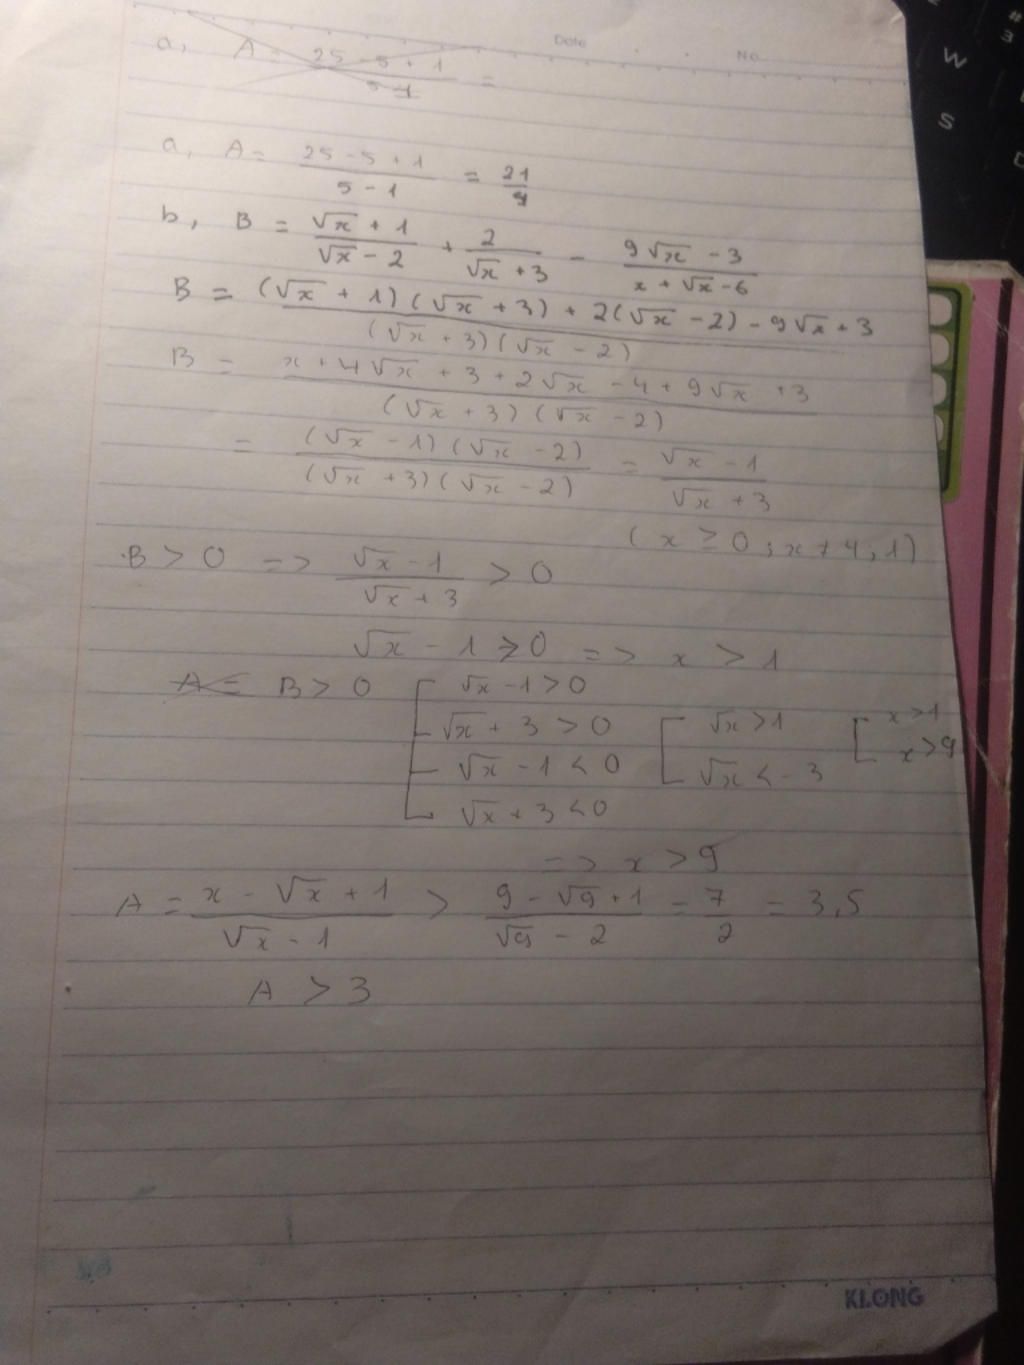 Date No.
a, A = (25 - 5 + 1)/(5 - 1) =
a, A = (25 - 5 + 1)/(5 - 1) = 21/4
b, B = (√x + 1)/(√x - 2) + 2/(√x + 3) - (9√x - 3)/(x + √x - 6)
B = ((√x + 1)(√x + 3) + 2(√x - 2) - 9√x + 3)/((√x + 3)(√x - 2))
B = (x + 4√x + 3 + 2√x - 4 + 9√x + 3)/((√x + 3)(√x - 2))
= ((√x - 1)(√x - 2))/((√x + 3)(√x - 2)) = (√x - 1)/(√x + 3)
(x ≥ 0; x ≠ 4; 1)
B > 0 => (√x - 1)/(√x + 3) > 0
√x - 1 > 0 => x > 1
A = B > 0 [ √x - 1 > 0
√x + 3 > 0 [ √x > 1 [ x > 1
√x - 1 < 0 √x < -3 x > 9
√x + 3 < 0
=> x > 9
A = (x - √x + 1)/(√x - 1) > (9 - √9 + 1)/(√9 - 2) = 7/2 = 3,5
A > 3
KLONG
W
S
#
3